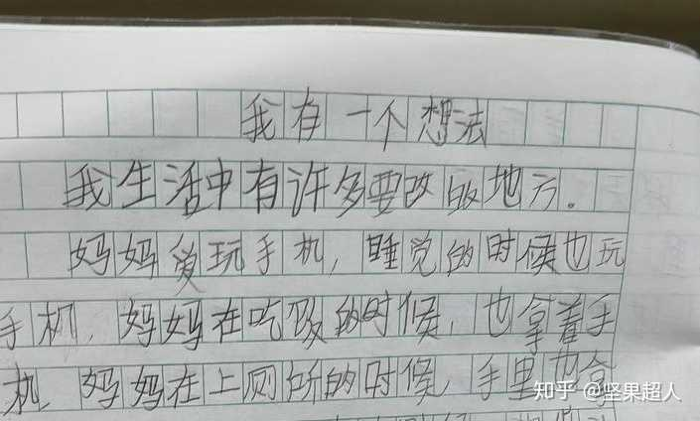 我有一个想法
我生活中有许多要改的地方。
妈妈爱玩手机，睡觉的时候也玩
手机，妈妈在吃饭的时候，也拿着手
机，妈妈在上厕所的时候，手里也拿
知乎 @坚果超人